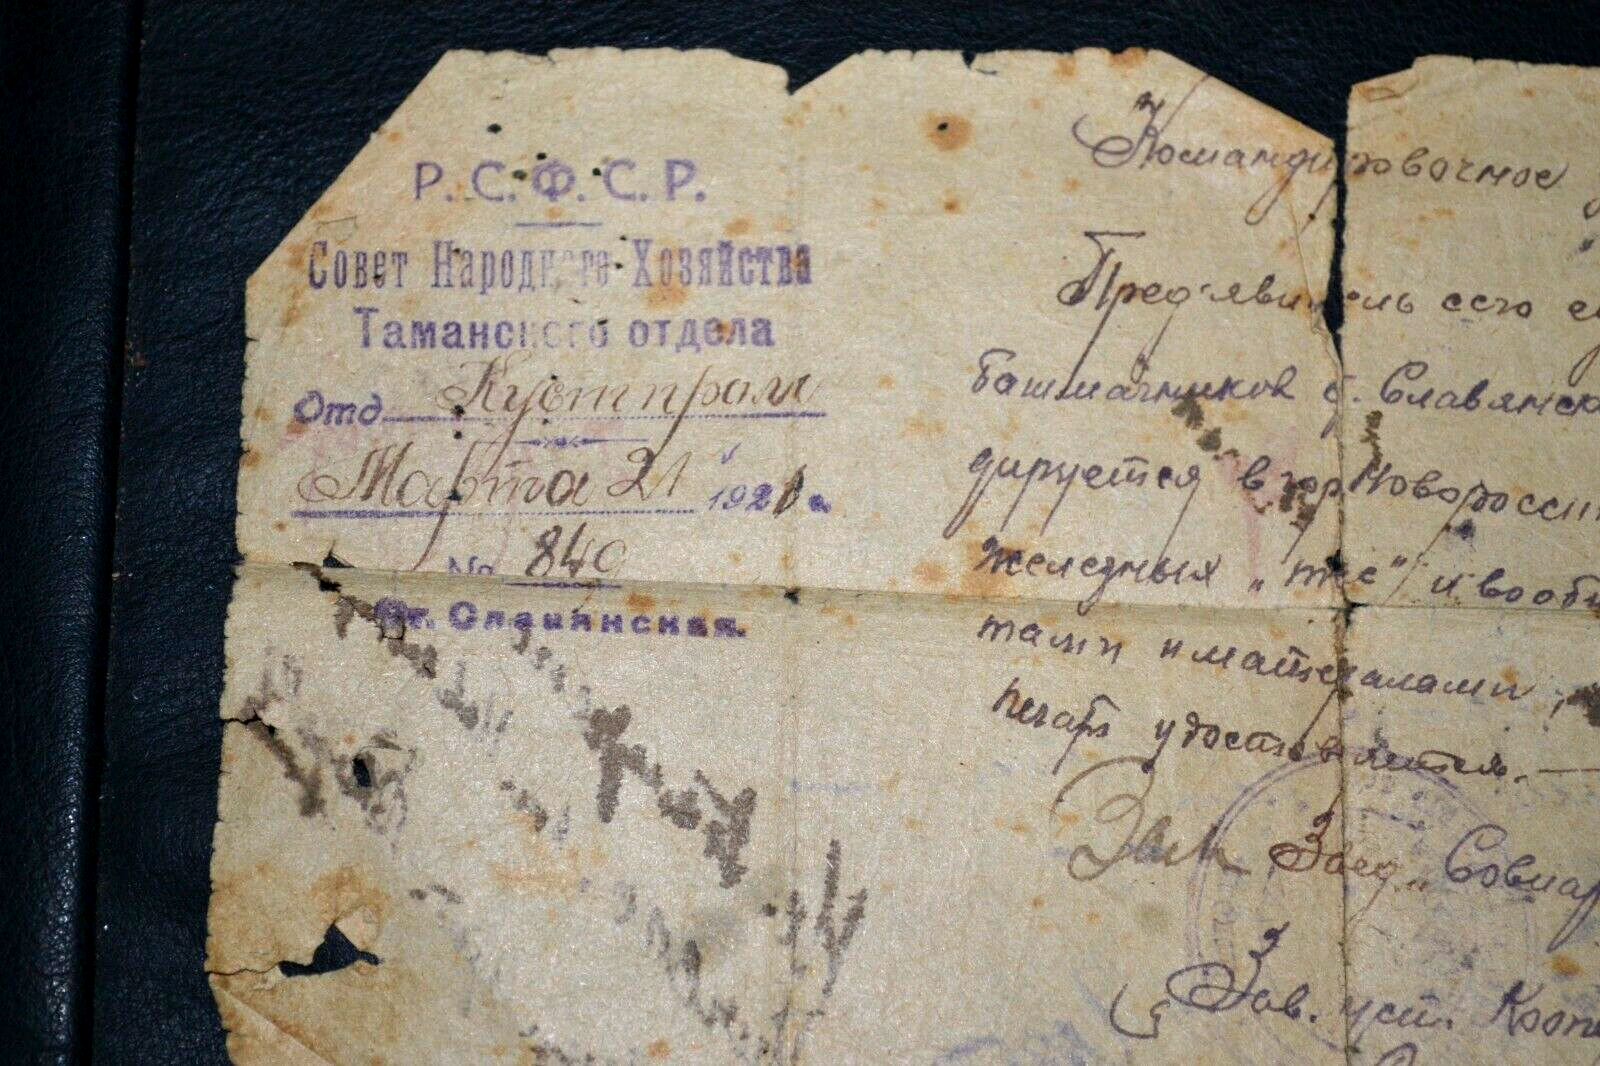 Р. С. Ф. С. Р.
Совет Народного Хозяйства
Таманского отдела
Отд Кустпром
Марта 21 1921 г.
№ 840
Ст. Славянская.
Командировочное
Пред'явитель сего
башмачников Славянско
дируется в гор Новоросси
железных и вооб
тами и материалами,
печать удостовяется.
Зам Завед. Совнар
Зав. Кооп